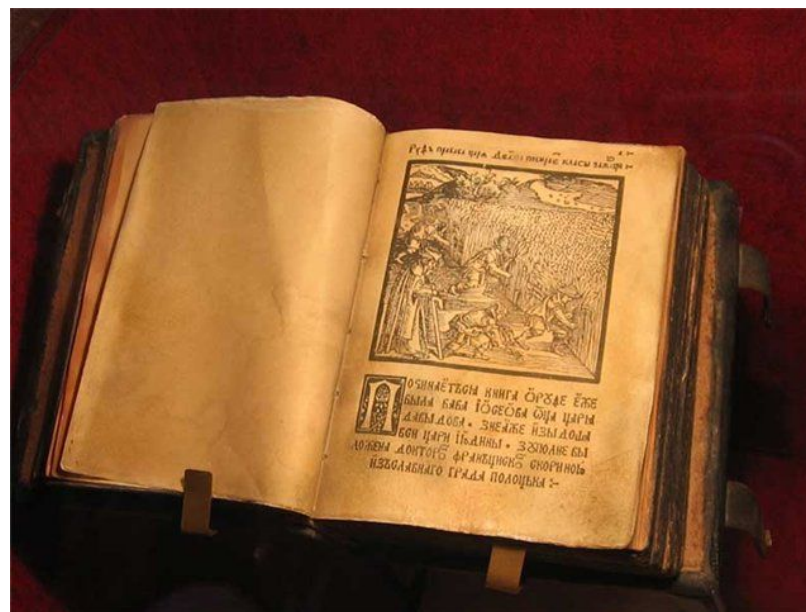 Руѳь прабаба царя Двда пожинаеть класы
ПОЧИНАЕТЬСЯ КНИГА Ѡ РУѲЕ ЕЖЕ
БЫЛА БАБА ІОСЕѠВА ѾЦА ЦАРЯ
ДАВЫДОВА. ЗНЕѦЖЕ ИЗЫДОША
ВСИ ЦАРИ ІЮДИНЫ. ЗУПОЛНЕ ВЫ
ЛОЖЕНА ДОКТОРОМ ФРАНЬЦИСКОМ СКОРИНОЮ
ИЗЪСЛАВНАГО ГРАДА ПОЛОЦЬКА :-